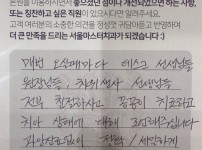 본원을 이용하시면서 좋았던 점이나 개선되었으면 하는 사항,
또는 칭찬하고 싶은 직원이 있으시다면 말려주세요.
고객 여러분의 소중한 의견을 정성껏 귀담아듣고 반영하여
더 큰 만족을 드리는 서울마스터치과가 되겠습니다 :)
매번 오실때마다 데스크 선생님들
원장님들, 치위생사 선생님들
전부 친절하시고 꼼꼼히 치료하고
치아 상태에 대해
과잉진료없이 정확/세밀하게